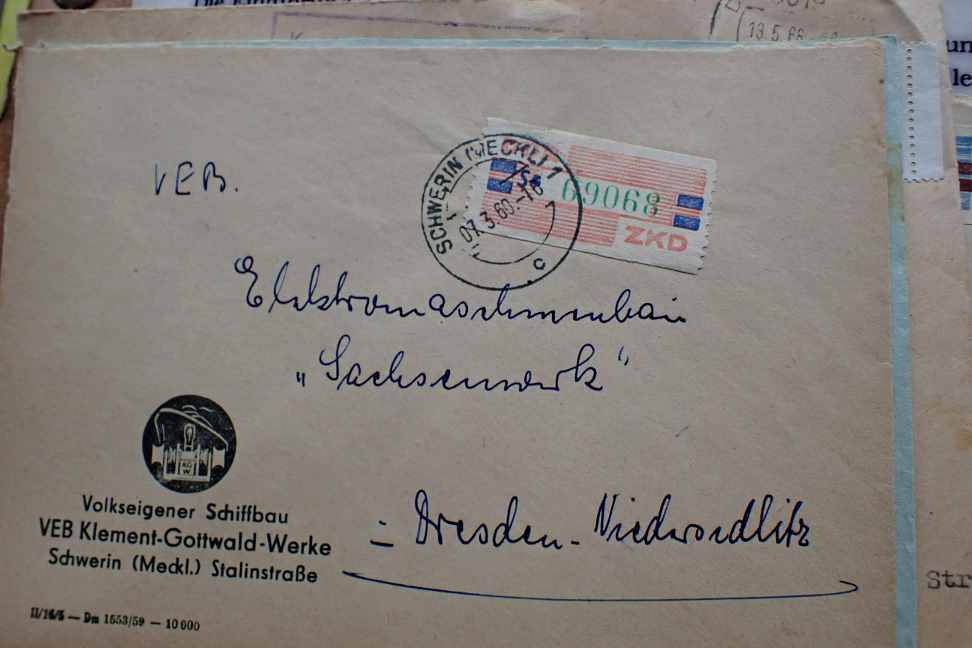 13.5.66
SCHWERIN (MECKL) 1
07.3.60.-16
c
69068
ZKD
VEB.
Elektromaschinenbau
„Sachsenwerk"
Volkseigener Schiffbau
VEB Klement-Gottwald-Werke
Schwerin (Meckl.) Stalinstraße
- Dresden-Niedersedlitz
II/16/5 — Dm 1553/59 — 10 000
Str